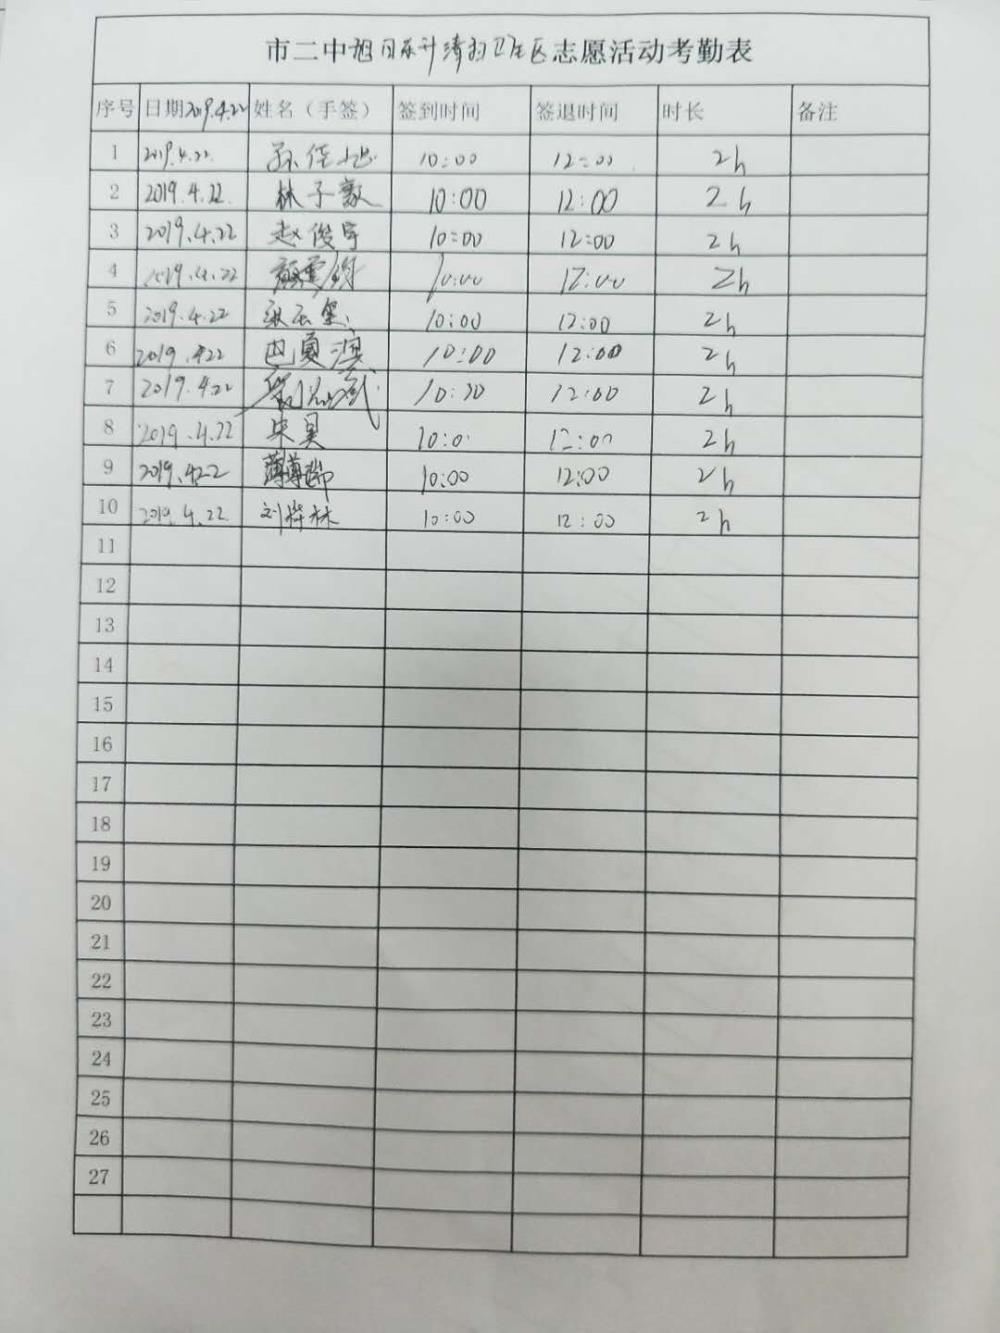 市二中旭日东升清扫卫生区志愿活动考勤表
序号 日期2019.4.22 姓名（手签） 签到时间 签退时间 时长 备注
1 2019.4.22. 孙佳旭 10:00 12:00 2h
2 2019.4.22. 林子毅 10:00 12:00 2h
3 2019.4.22 赵俊宇 10:00 12:00 2h
4 2019.4.22 10:00 12:00 2h
5 2019.4.22 10:00 12:00 2h
6 2019.422 10:00 12:00 2h
7 2019.4.22 12:00 2h
8 2019.4.22 10:0 12:00 2h
9 2019.422 10:00 12:00 2h
10 2019.4.22 10:00 12:00 2h
11
12
13
14
15
16
17
18
19
20
21
22
23
24
25
26
27